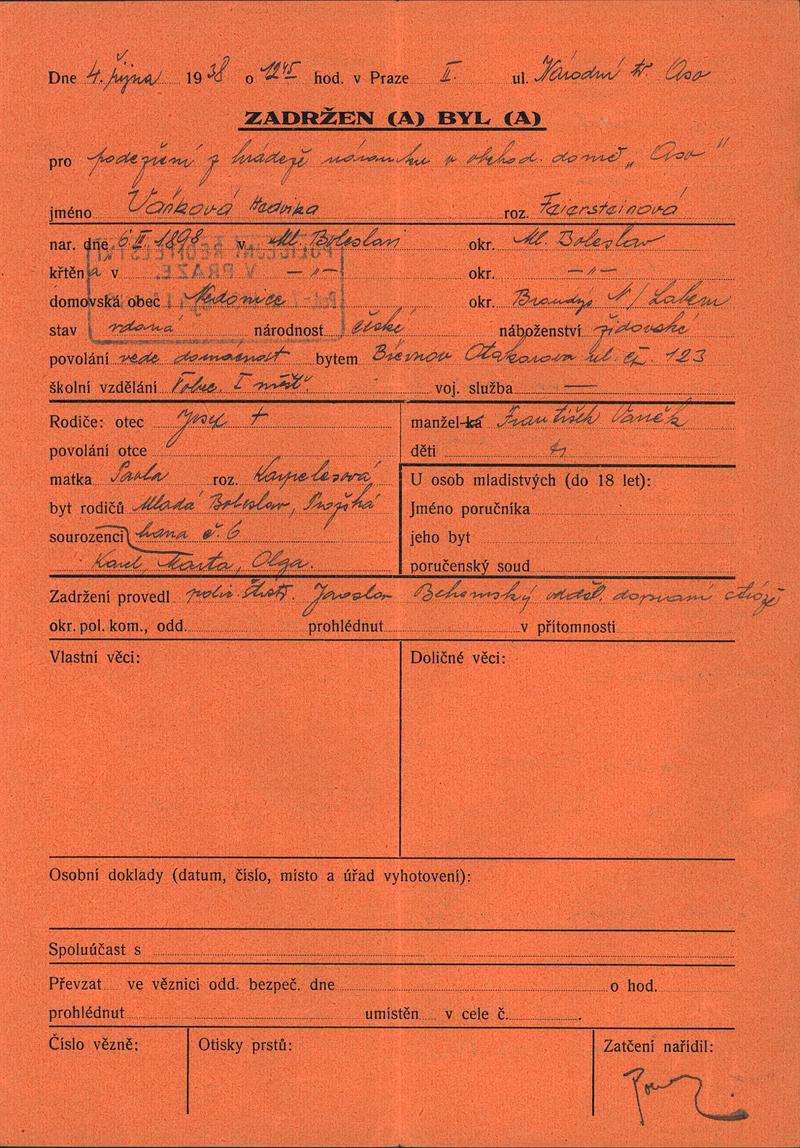 Dne 4. října 1938 o 12 45 hod. v Praze II. ul. Národní tř. Aso
ZADRŽEN (A) BYL (A)
pro podezření z krádeže náramku v obchod. domě „Aso"
jméno Vaňková Hedvika roz. Feiersteinová
nar. dne 6 II 1898 v Ml. Boleslavi okr. Ml. Boleslav
křtěna v —„— okr. —„—
domovská obec Nedomice okr. Brandýs N/Labem
stav vdaná národnost české náboženství židovské
povolání vede domácnost bytem Břevnov Otakarova ul. čp. 123
školní vzdělání 5 obec. I měšť. voj. služba —
Rodiče: otec Josef +
povolání otce
matka Pavla roz. Karpelesová
byt rodičů Mladá Boleslav, Pražská
brána č. 6
sourozenci
Karel, Marta, Olga.
manžel-ka František Vaněk
děti
U osob mladistvých (do 18 let):
Jméno poručníka
jeho byt
poručenský soud
Zadržení provedl policí. Jaroslav odděl. dopravní
okr. pol. kom., odd. prohlédnut v přítomnosti
Vlastní věci:
Doličné věci:
Osobní doklady (datum, číslo, místo a úřad vyhotovení):
Spoluúčast s
Převzat ve věznici odd. bezpeč. dne o hod.
prohlédnut umístěn v cele č.
Číslo vězně:
Otisky prstů:
Zatčení nařídil:
POLICEJNÍ ŘEDITELSTVÍ
V PRAZE.